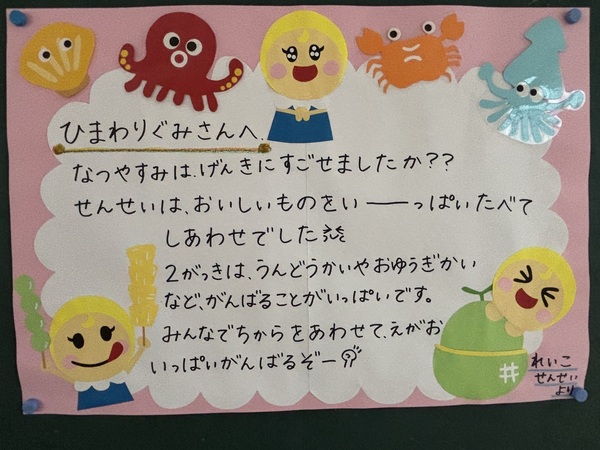 ひまわりぐみさんへ.
なつやすみは、げんきにすごせましたか??
せんせいは、おいしいものをい――っぱいたべて
しあわせでした
2がっきは、うんどうかいやおゆうぎかい
など、がんばることがいっぱいです。
みんなでちからをあわせて、えがお
いっぱいがんばるぞー
れいこ
せんせい
より